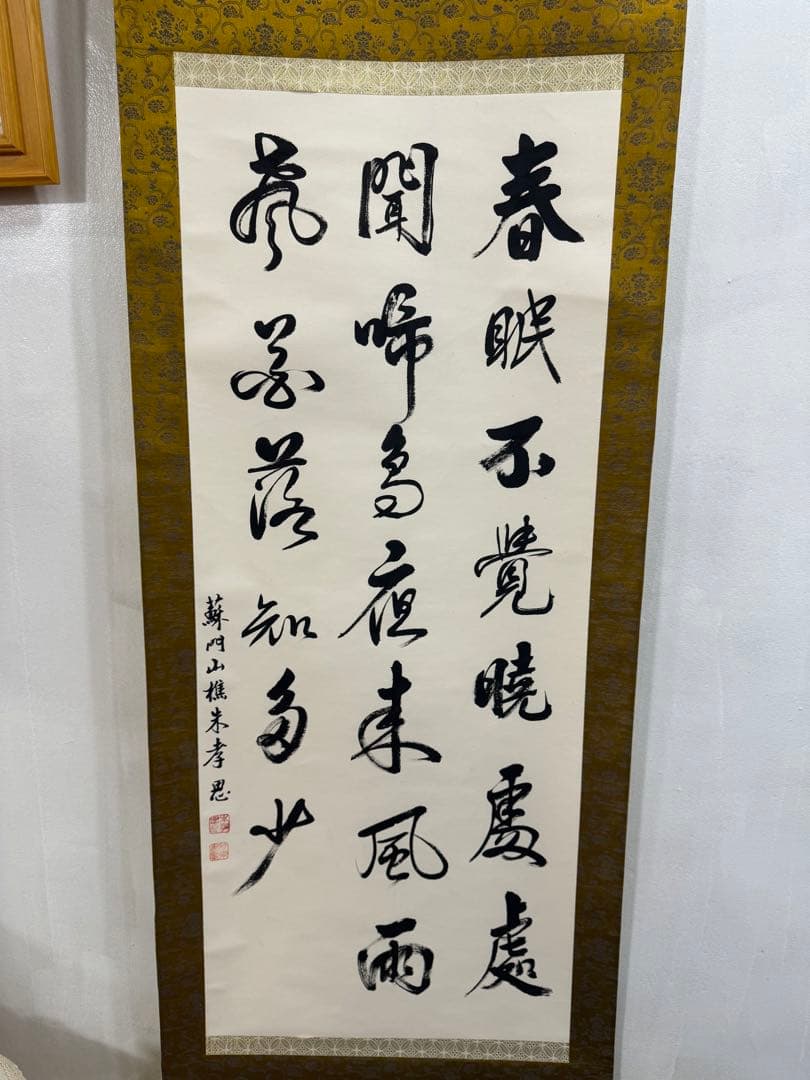 春眠不覺曉處處
聞啼鳥夜来風雨
聲花落知多少
蘇門山樵朱孝思